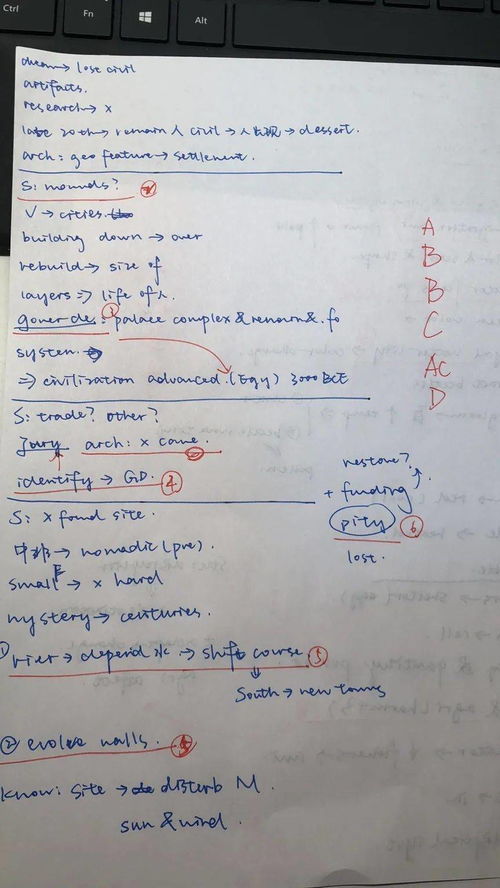 Ctrl
Fn
Alt
→ lose civil
artifacts.
research → x
late 20th → remain 人 civil → 人发现 → dessert.
arch: geo feature → settlement.
S: mounds?
V → cities.
building down → over
rebuild → size of
layers => life of 人.
goner de: ① palace complex & renown & fo
system.
=> civilization advanced. (Egy) 3000 BCE
S: trade? other?
arch: x came.
identify → GD. ②
S: x found site.
中非 → nomadic (pre).
small → x hard
mystery → centuries.
① rier → depend 水 → shift course. ⑤
South → new towns
② evolve walls.
know: site → disturb M.
sun & wind.
restore?
+ funding
pity ⑥
lost.
A
B
B
C
AC
D